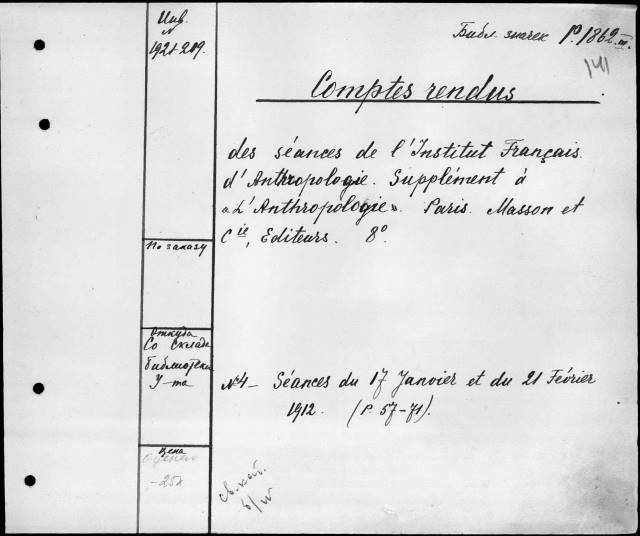 Инв.
№
1921-209.
Библ. значек Р. 1862 III.
141
Comptes rendus
des séances de l'Institut Français
d'Anthropologie. Supplément à
"L'Anthropologie". Paris. Masson et
Cie, Editeurs. 8°
По заказу
Откуда
Со склада
библиотеки
У-та
№4 – Séances du 17 Janvier et du 21 Février
1912. (P. 57-71).
Цена
Оценено
-25к